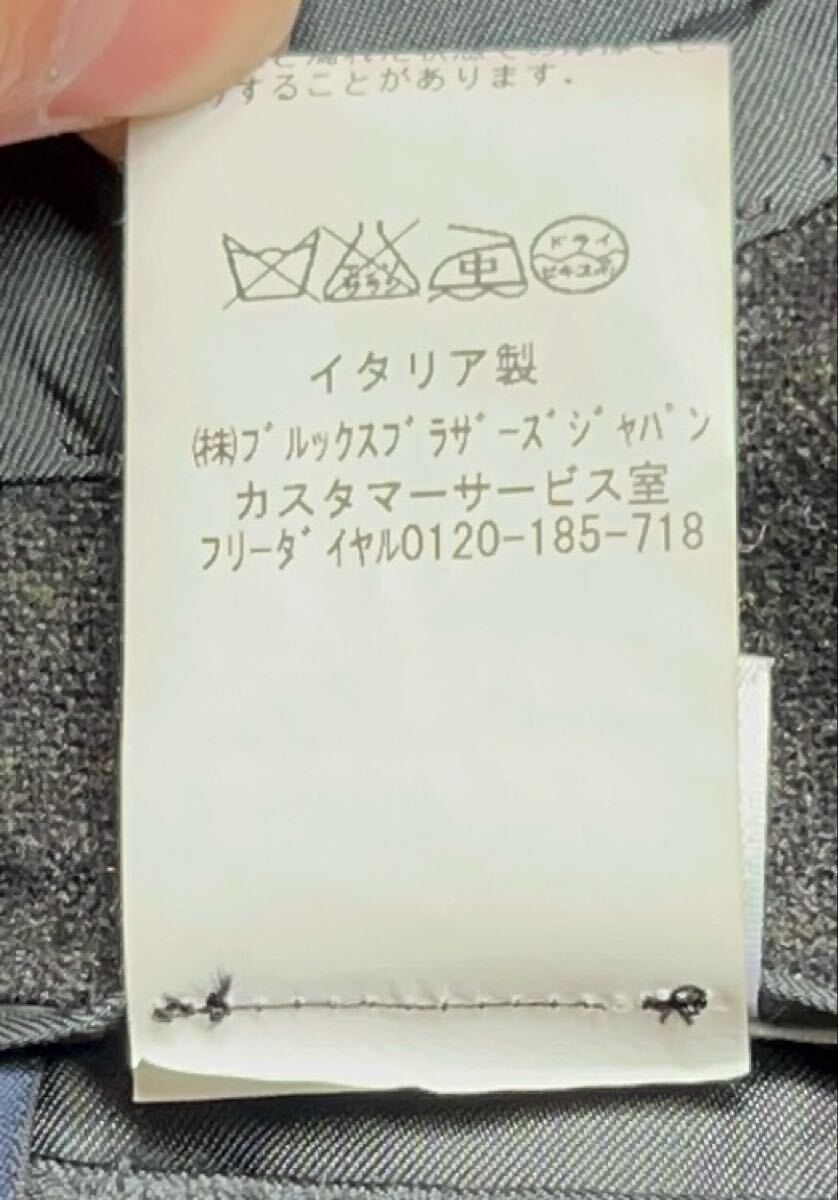 することがあります.
エンソサラシ
中
ドライ
セキユ系
イタリア製
㈱ブルックスブラザーズジャパン
カスタマーサービス室
フリーダイヤル0120-185-718